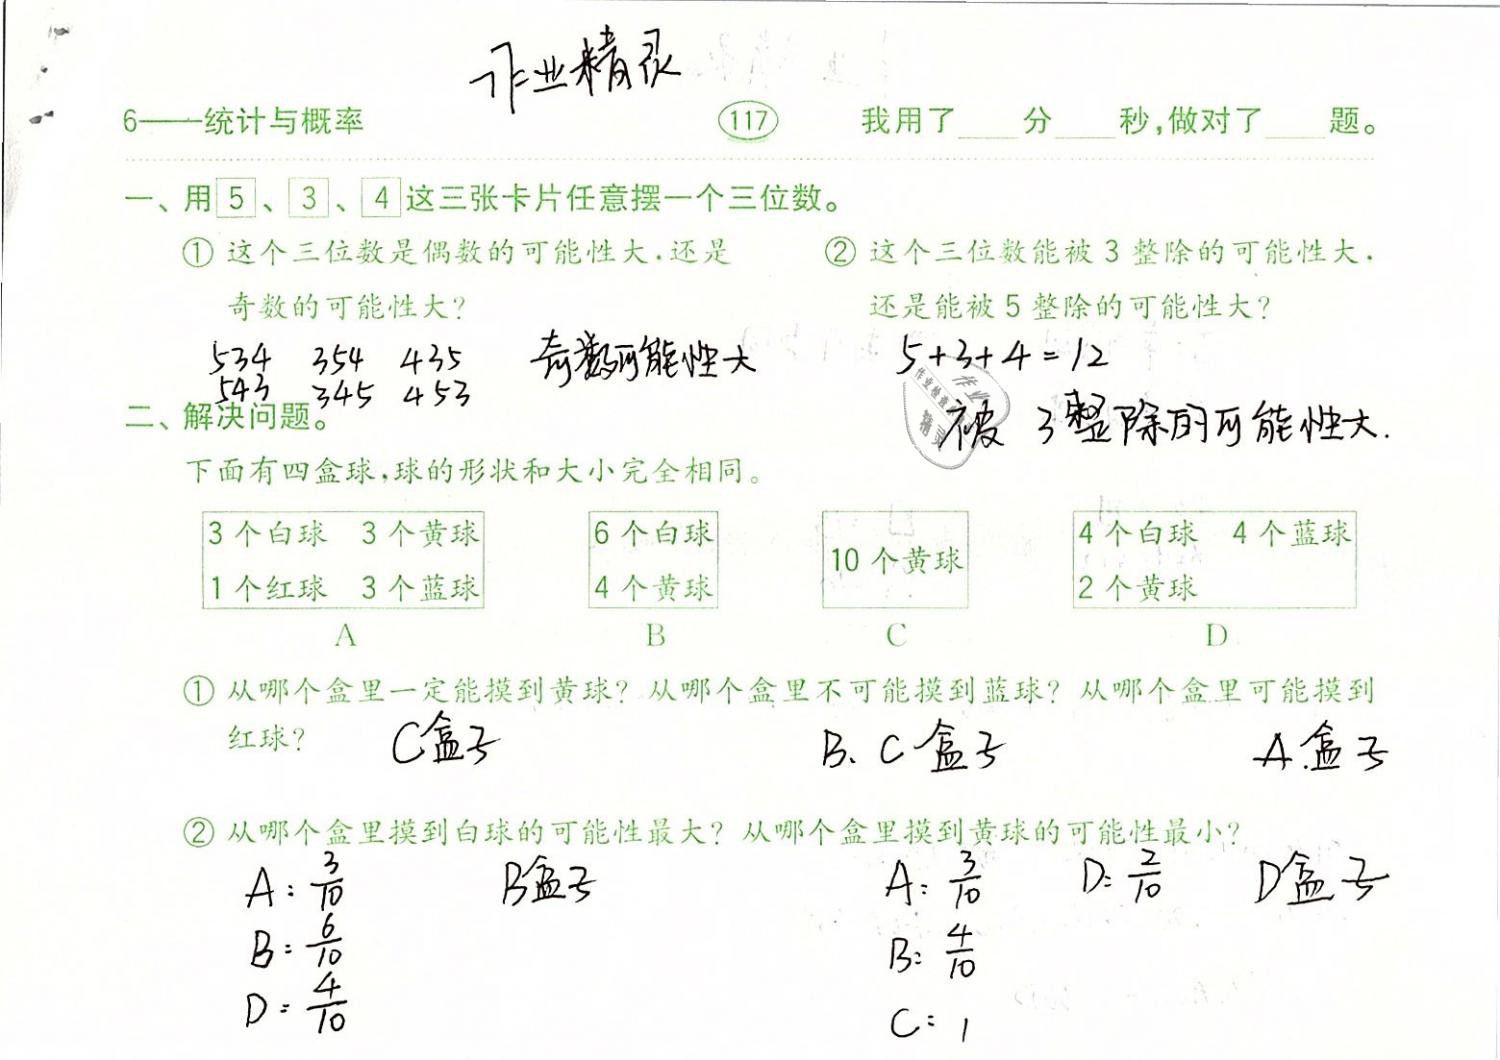 作业精灵
6——统计与概率 117 我用了____分____秒,做对了____题。
一、用 5 、 3 、 4 这三张卡片任意摆一个三位数。
① 这个三位数是偶数的可能性大,还是 ② 这个三位数能被 3 整除的可能性大,
奇数的可能性大? 还是能被 5 整除的可能性大?
534 354 435 奇数可能性大 5+3+4=12
543 345 453
作业
作业检查
精灵
被 3 整除的可能性大.
二、解决问题。
下面有四盒球,球的形状和大小完全相同。
3 个白球 3 个黄球 6 个白球 10 个黄球 4 个白球 4 个蓝球
1 个红球 3 个蓝球 4 个黄球 2 个黄球
A B C D
① 从哪个盒里一定能摸到黄球? 从哪个盒里不可能摸到蓝球? 从哪个盒里可能摸到
红球? C盒子 B、C盒子 A.盒子
② 从哪个盒里摸到白球的可能性最大? 从哪个盒里摸到黄球的可能性最小?
A: 3/10 B盒子 A: 3/10 D: 2/10 D盒子
B: 6/10 B: 4/10
D: 4/10 C: 1